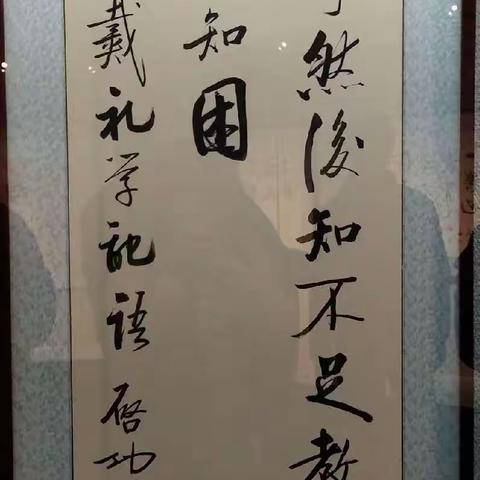 然後知不足教
知困
戴礼学記語 启功